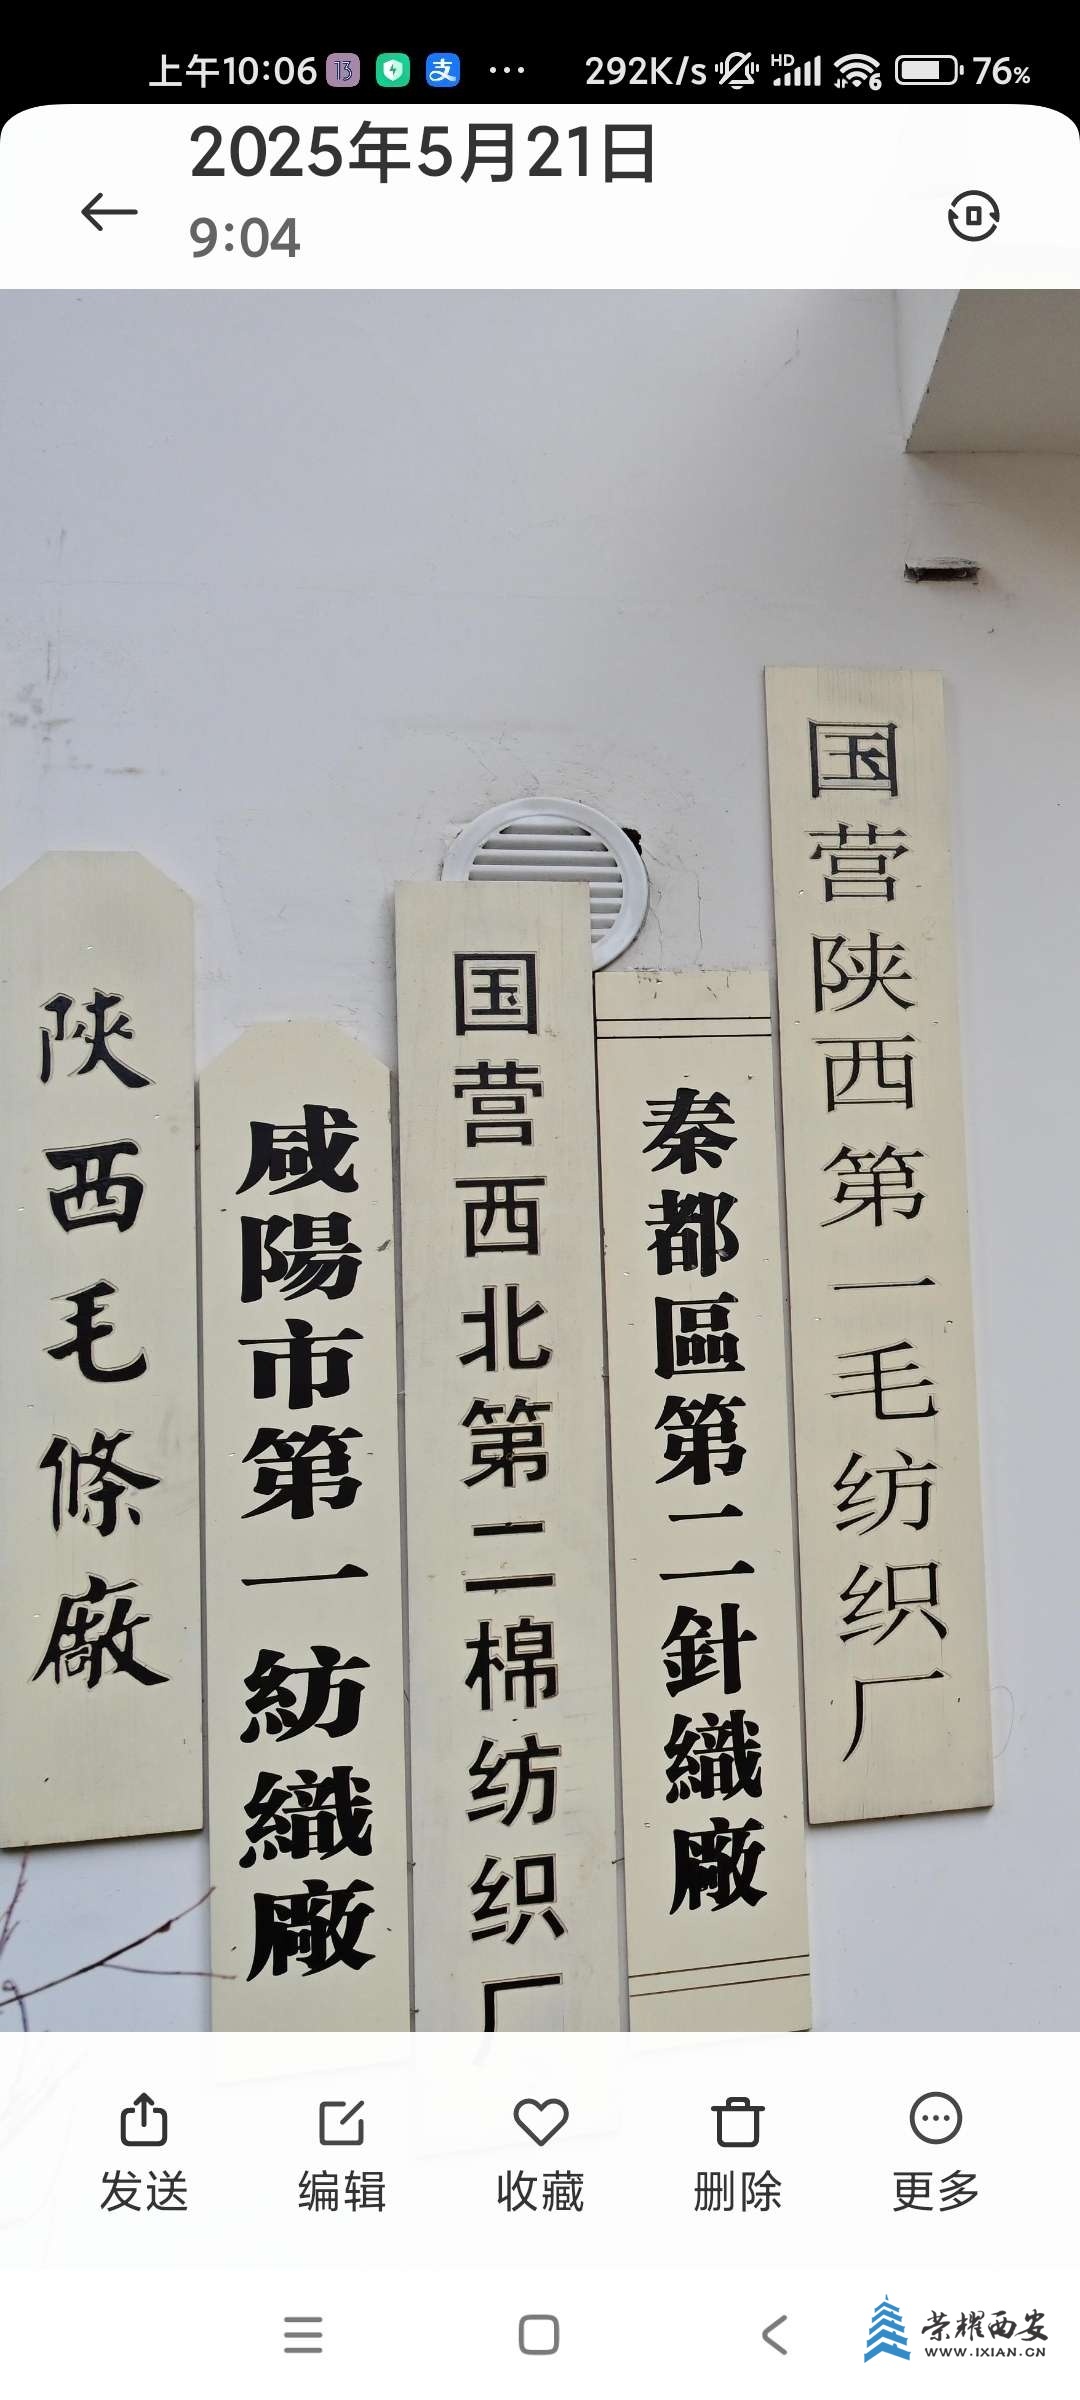 上午10:06
292K/s
HD
6
76%
2025年5月21日
9:04
陝西毛條廠
咸陽市第一紡織廠
国营西北第二棉纺织厂
秦都區第二針織廠
国营陕西第一毛纺织厂
发送
编辑
收藏
删除
更多
荣耀西安
WWW.IXIAN.CN